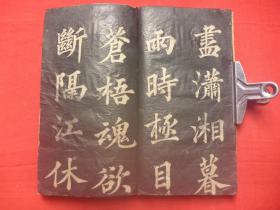 盡瀟湘暮
雨時極目
蒼梧魂欲
斷隔江休